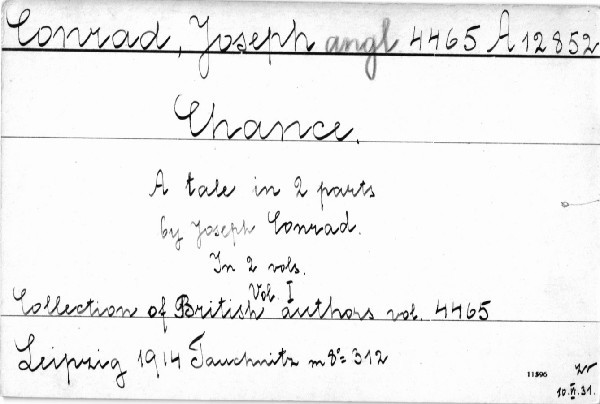 Conrad, Joseph angl 4465 A 12852
Chance.
A tale in 2 parts
by Joseph Conrad.
In 2 vols.
Vol. I
Collection of British authors vol. 4465
Leipzig 1914 Tauchnitz m 8° 312
11896
10.VI.31.